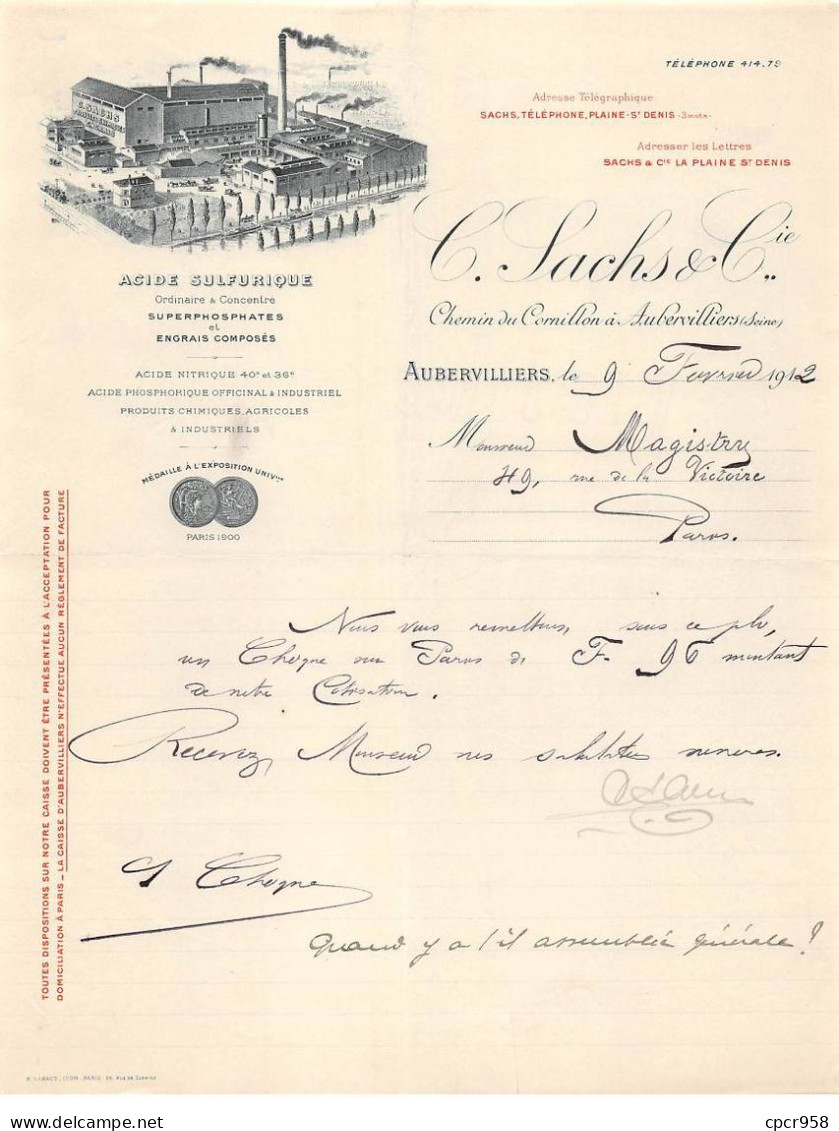 C. SACHS
TÉLÉPHONE 414.79
Adresse Télégraphique
SACHS, TÉLÉPHONE, PLAINE-ST DENIS -3 mots-
Adresser les Lettres
SACHS & Cie LA PLAINE ST DENIS
C. Sachs & Cie
Chemin du Cornillon à Aubervilliers (Seine)
ACIDE SULFURIQUE
Ordinaire & Concentré
SUPERPHOSPHATES
et
ENGRAIS COMPOSÉS
ACIDE NITRIQUE 40° et 36°
ACIDE PHOSPHORIQUE OFFICINAL & INDUSTRIEL
PRODUITS CHIMIQUES, AGRICOLES
& INDUSTRIELS
MÉDAILLE À L'EXPOSITION UNIVlle
PARIS 1900
AUBERVILLIERS, le 9 Février 1912
Monsieur Magistry
49, rue de la Victoire
Paris.
TOUTES DISPOSITIONS SUR NOTRE CAISSE DOIVENT ÊTRE PRÉSENTÉES À L'ACCEPTATION POUR
DOMICILIATION À PARIS _ LA CAISSE D'AUBERVILLIERS N'EFFECTUE AUCUN RÈGLEMENT DE FACTURE
Nous vous remettons, sous ce pli,
un Chèque sur Paris de F. 96 montant
de notre Cotisation.
Recevez, Monsieur nos salutations sincères.
1 Chèque
Quand y a t'il assemblée générale ?
cpcr958